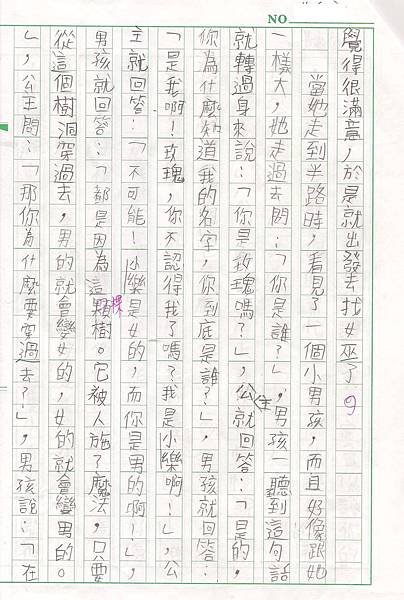 NO.
覺得很滿意，於是就出發去找女巫了。
當她走到半路時，看見了一個小男孩，而且好像跟她
一樣大，她走過去問：「你是誰？」，男孩一聽到這句話
就轉過身來說：「你是玫瑰嗎？」，公主就回答：「是的，
你為什麼知道我的名字，你到底是誰？」，男孩就回答：
「是我啊！玫瑰，你不認得我了嗎？我是小樂啊！」，公
主就回答：「不可能！小樂是女的，而你是男的啊！」，
男孩就回答：「都是因為這顆棵樹。它被人施了魔法，只要
從這個樹洞穿過去，男的就會變女的，女的就會變男的。
」，公主問：「那你為什麼要穿過去？」，男孩說：「在